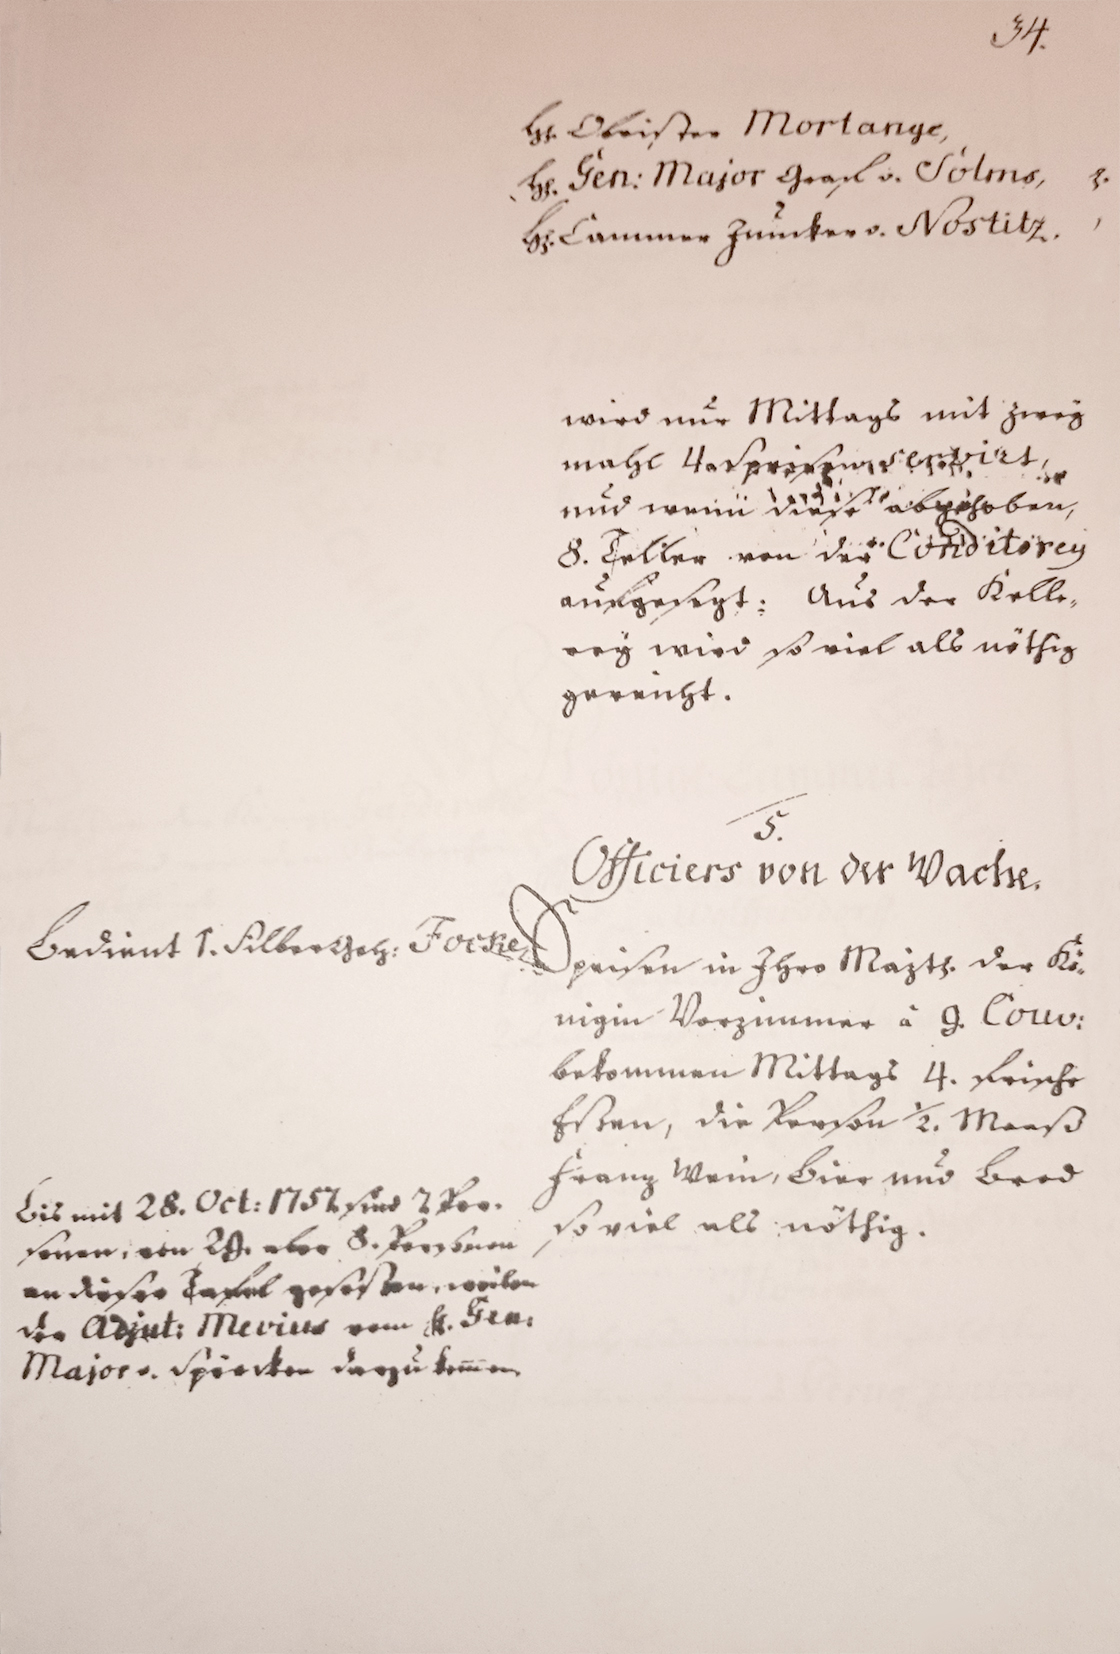 34.
H. Obrister Mortange,
H. Gen: Major Graf v. Solms,
H. Cammer Juncker v. Nostitz.
wird nur Mittags mit zwey
mahl 4. Speisen servirt,
und wenn diese abgehoben,
8. Teller von der Conditorey
aufgesezt: Aus der Kelle-
rey wird so viel als nöthig
gereicht.
5.
Officiers von der Wache.
Bedient 1. Silber Geh: Focke
Speisen in Ihro Majth. der Kö-
nigin Vorzimmer à 9. Couv:
bekommen Mittags 4. frische
Eßen, die Person 1/2. Maaß
Franz Wein, Bier und Brod
so viel als nöthig.
Bis mit 28. Oct: 1757. sind 7 Per-
sonen, von 29. aber 8. Personen
an dieser Tafel gesessen, weilen
der Adjut: Mevius vom H. Gen:
Major v. Spörcken darzu kommen